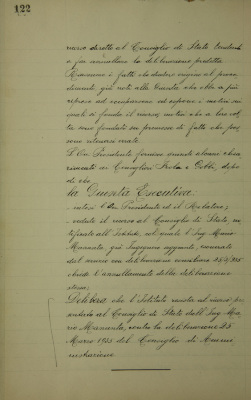 122
corso diretto al Consiglio di Stato tendente
a far annullare la deliberazione predetta.
Riassume i fatti che diedero origine al provve
dimento già noti alla Giunta che ebbe a più
riprese ad occuparsene ed espone i motivi sui
quali si fonda il ricorso, motivi che a lor vol
ta sono fondati su premesse di fatto che pos
sono ritenersi errate.
L'On. Presidente fornisce quindi alcuni chia
rimenti ai Consiglieri e dopo
di che
la Giunta Esecutiva
- intesi l'On. Presidente ed il Relatore;
- veduto il ricorso al Consiglio di Stato, no
tificato all'Istituto, col quale l'Ing. Mario
già Ingegnere aggiunto, esonerato
dal servizio con deliberazione consiliare
chiede l'annullamento della deliberazione
stessa;
Delibera che l'Istituto resista al ricorso pro
dotto al Consiglio di Stato dall'Ing. Ma
rio contro la deliberazione 25
Marzo 1925 del Consiglio di Ammi
nistrazione